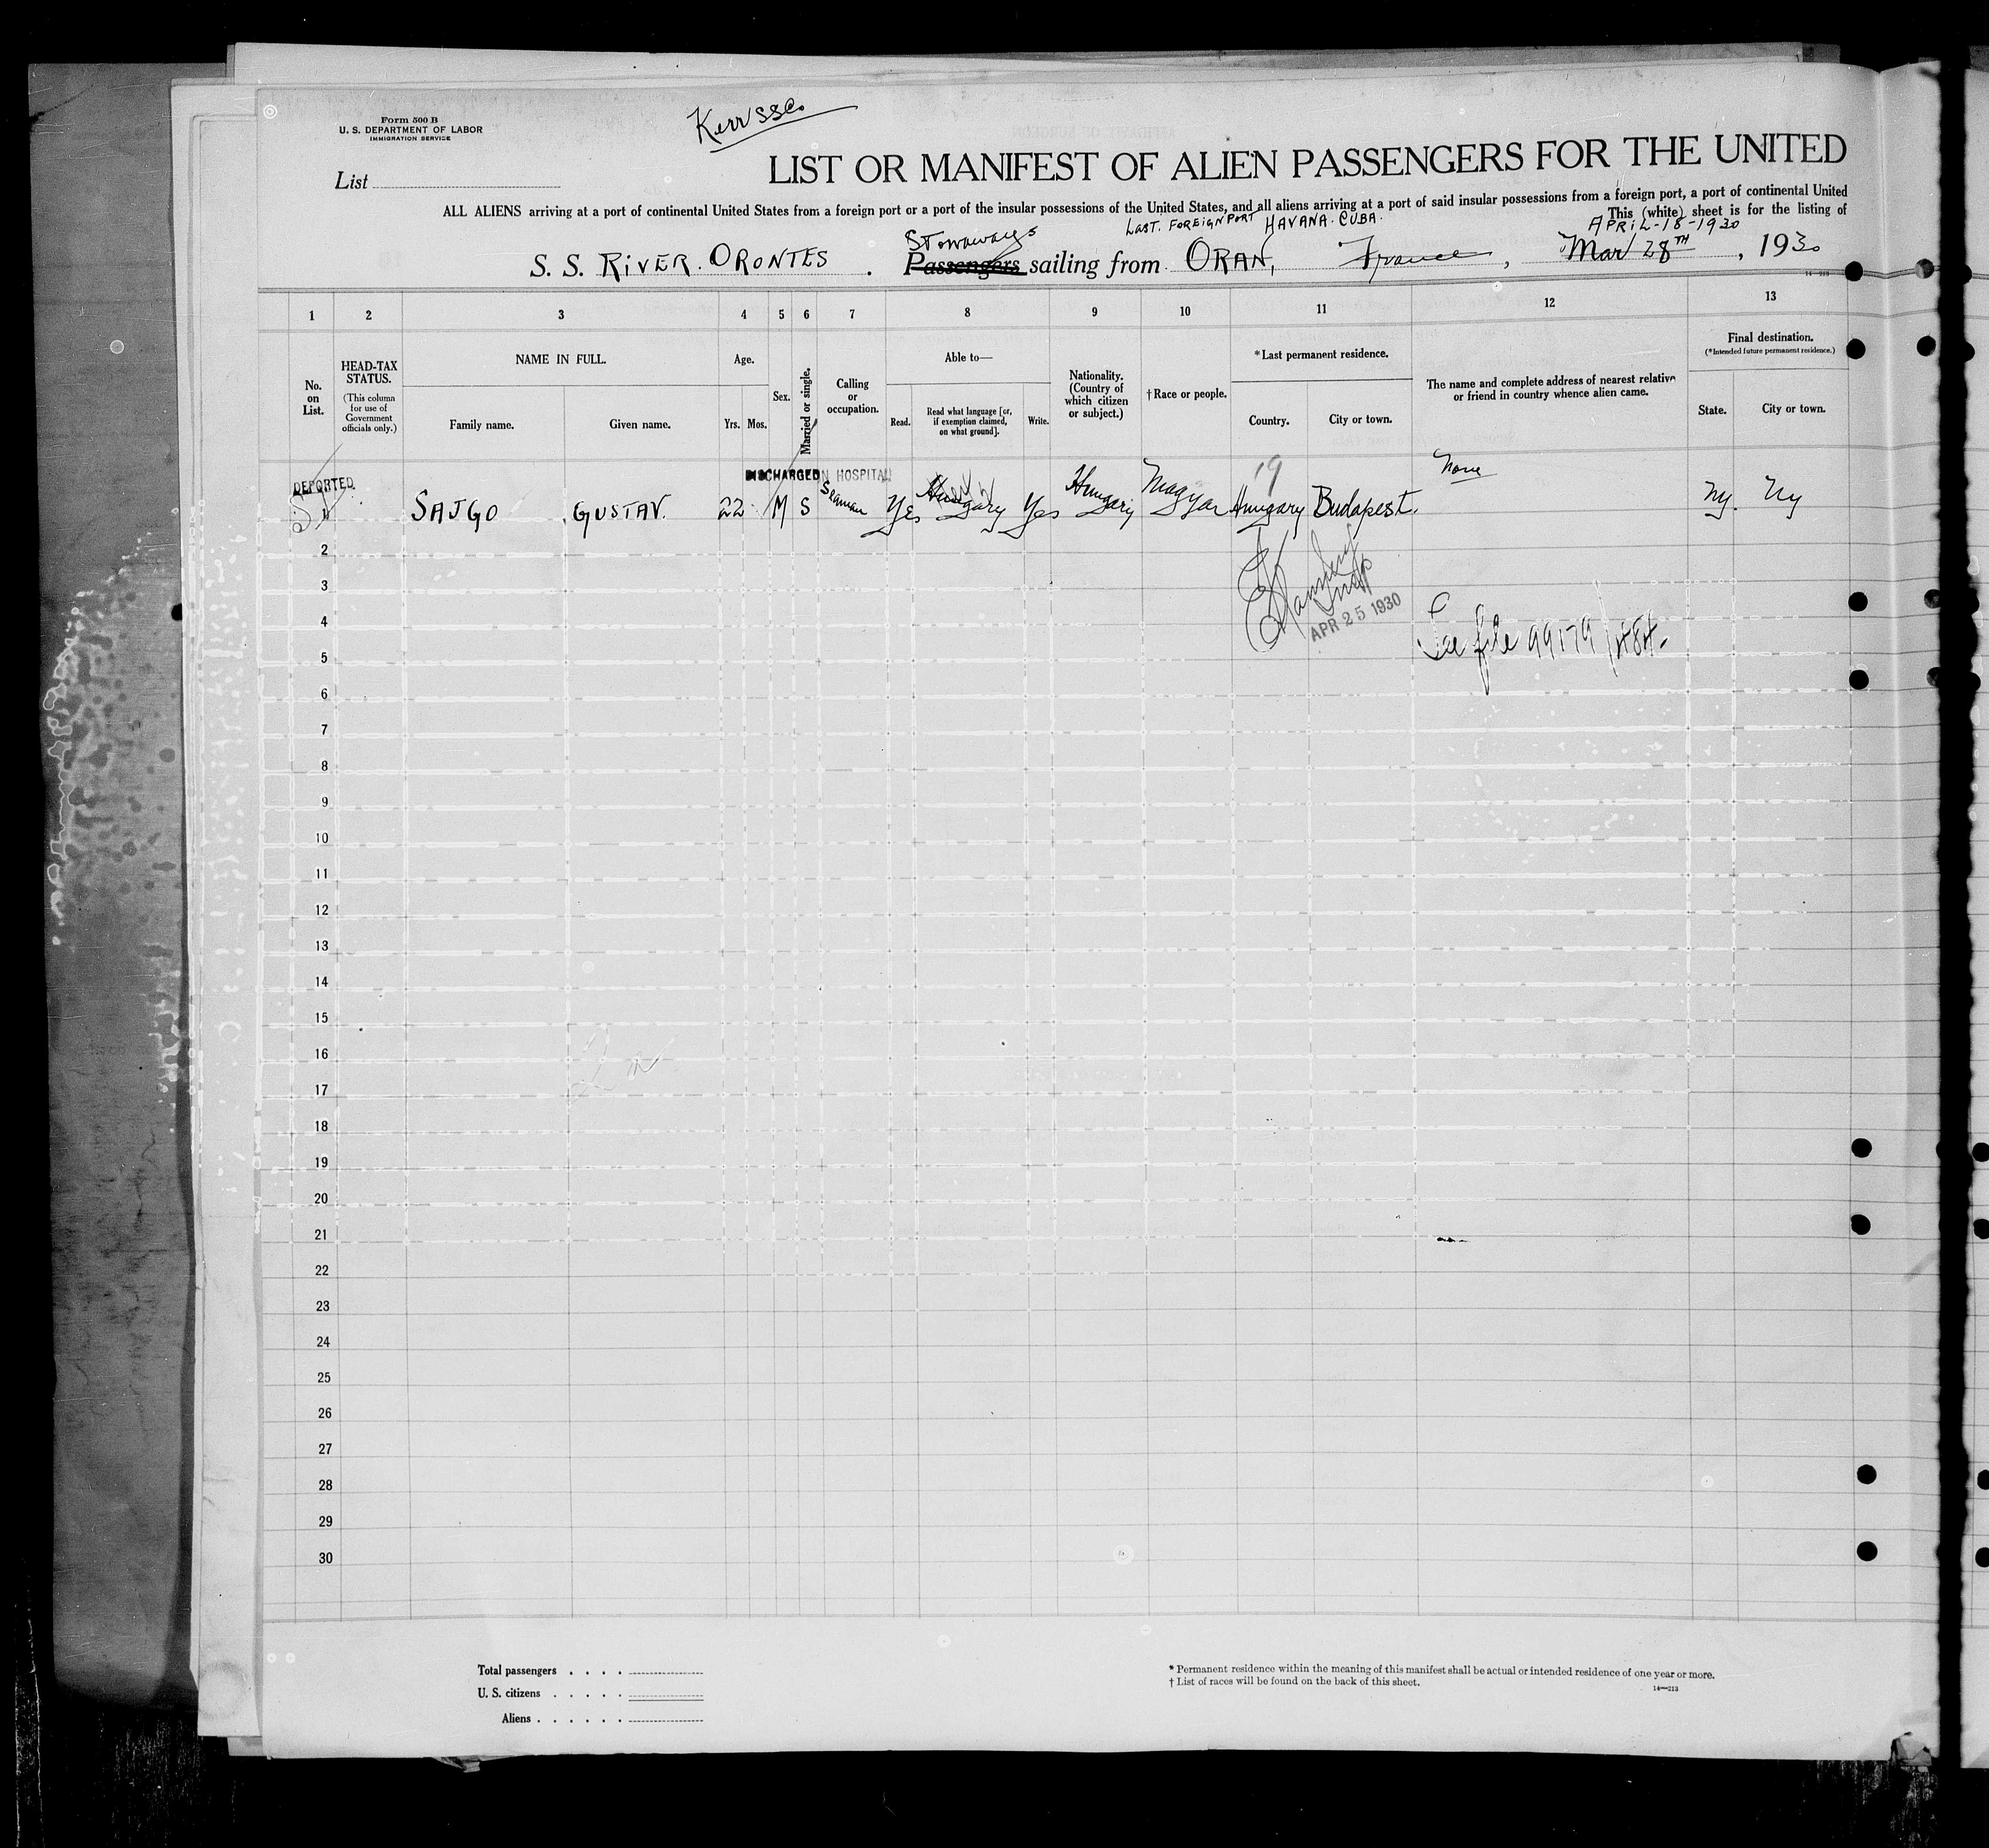 Form 500 B
U. S. DEPARTMENT OF LABOR
IMMIGRATION SERVICE
Kerr SSCo
List
LIST OR MANIFEST OF ALIEN PASSENGERS FOR THE UNITED
ALL ALIENS arriving at a port of continental United States from a foreign port or a port of the insular possessions of the United States, and all aliens arriving at a port of said insular possessions from a foreign port, a port of continental United
This (white) sheet is for the listing of
LAST. FOREIGN PORT HAVANA. CUBA.
APRIL-18-1930
Stowaways
S. S. RIVER. ORONTES . Passengers sailing from ORAN, France, Mar 28TH, 1930
14—213
1 2 3 4 5 6 7 8 9 10 11 12 13
No. on List.
HEAD-TAX STATUS.
(This column for use of Government officials only.)
NAME IN FULL.
Family name.
Given name.
Age.
Yrs. Mos.
Sex.
Married or single.
Calling or occupation.
Able to—
Read.
Read what language [or, if exemption claimed, on what ground].
Write.
Nationality. (Country of which citizen or subject.)
†Race or people.
*Last permanent residence.
Country.
City or town.
The name and complete address of nearest relative or friend in country whence alien came.
Final destination.
(*Intended future permanent residence.)
State.
City or town.
DEPORTED
DISCHARGED
HOSPITAL
19
None
SAJGO GUSTAV. 22 M S Seaman Yes Hungary Yes Hungary Magyar Hungary Budapest. Ny. Ny
2
3
4
APR 25 1930
See file 99179/484.
5
6
7
8
9
10
11
12
13
14
15
16
17
18
19
20
21
22
23
24
25
26
27
28
29
30
Total passengers . . . .
U. S. citizens . . . . .
Aliens . . . . . .
* Permanent residence within the meaning of this manifest shall be actual or intended residence of one year or more.
† List of races will be found on the back of this sheet.
14—213